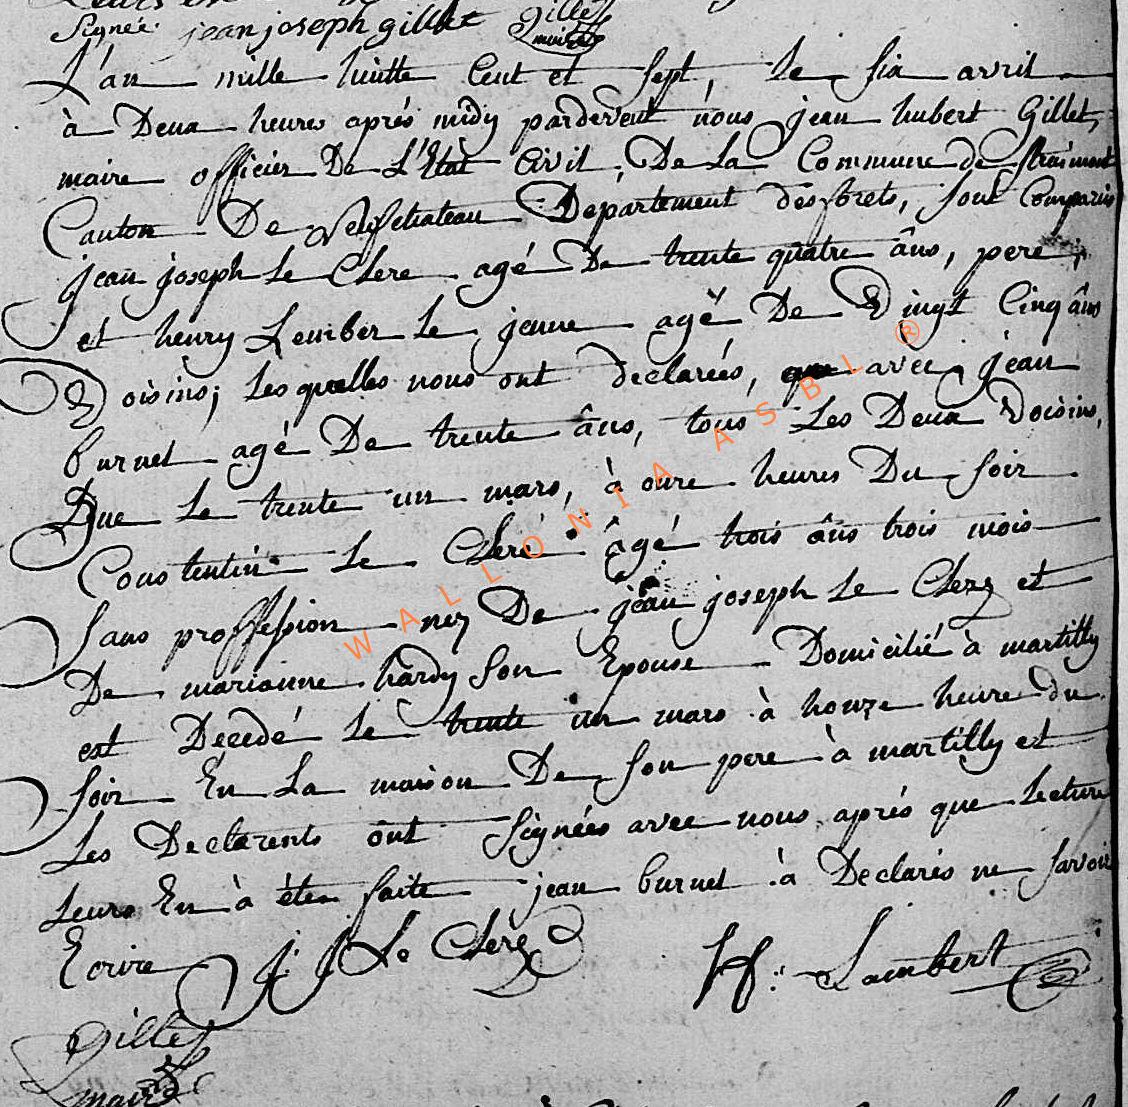 Signée jean joseph gillet Gillet
maire
L'an mille huitte Cent et sept, le six avril
à Deux heures aprés midy pardevent nous jean hubert Gillet,
maire officier De L'Etat Civil, De La Commune de Straimont
Canton De Neufchateau Département desforets, sont Comparus
jean joseph Le Clere agé De trente quatre âns, pere,
et henry Lember Le jeune agé De Vingt Cinq âns
Voisins; Lesquelles nous ont declarées, avec jean
burnet agé De trente âns, tous Les Deux Voisins,
Que Le trente un mars, à onze heures Du soir
Constentin Le Clere âgé trois âns trois mois
sans proffession nez De jean joseph Le Clerz et
De marianne hardy son Epouse Domicilié à martilly
est Decedé Le trente un mars à honze heure du
soir En La maison De son pere à martilly et
Les Declarents ont signées avec nous aprés que Lecture
Leurs En à étés faite jean burnet à Declarés ne savoir
Ecrire J J Le Clere H: Lambert
Gillet
maire
WALLONIA ASBL ®